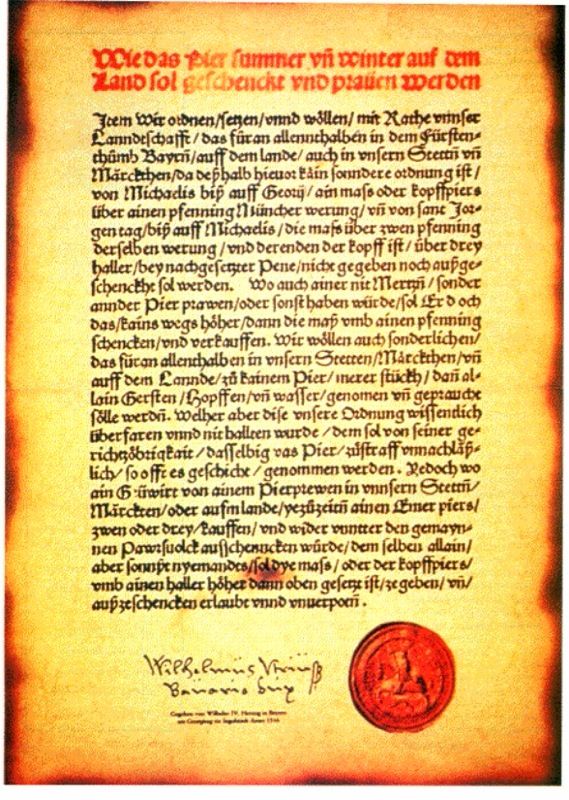 Wie das Pier summer vñ winter auf dem
Land sol geschenckt vnd prauen werden
Item Wir ordnen/setzen/vnnd wöllen/mit Rathe vnnser
Lanndtschafft/das füran allennthalben in dem Fürsten-
thůmb Bayrñ/auff dem lande/auch in vnsern Stettñ vñ
Märckthen/da deßhalb hieuor kain sonndere ordnung ist/
von Michaelis biß auff Georij/ain mass oder kopffpiers
über ainen pfenning Müncher werung/vñ von sant Jor-
gen tag/biß auff Michaelis/die mass über zwen pfenning
derselben werung/vnd derenden der kopff ist/über drey
haller/bey nachgesetzter Pene/nicht gegeben noch außge-
schenckhe sol werden. Wo auch ainer nit Mertzñ/sonder
annder Pier prawen/oder sonst haben würde/sol Er doch
das/kains wegs höher/dann die maß vmb ainen pfenning
schencken/vnd verkauffen. Wir wöllen auch sonderlichen/
das füran allenthalben in vnsern Stetten/Märckthen/vñ
auff dem Lannde/zů kainem Pier/merer stückh/dañ al-
lain Gersten/Hopffen/vñ wasser/genomen vñ gepraucht
sölle werdñ. Welher aber dise vnsere Ordnung wissendlich
überfaren vnnd nit hallten wurde/dem sol von seiner ge-
richtzöbrigkait/dasselbig vas Pier/zůstraff vnnachläß-
lich/so offt es geschicht/genommen werden. Yedoch wo
ain Güwirt von ainem Pierprewen in vnnsern Stettñ/
Märckten/oder aufm lande/yezůzeitñ ainen Emer piers/
zwen oder drey/kauffen/vnd wider vnntter den gemayn-
nen Pawrsuolck ausschenncken würde/dem selben allain/
aber sonnst nyemandes/sol dye mass/oder der kopffpiers/
vmb ainen haller höher dann oben gesetzt ist/ze geben/vñ/
außzeschencken erlaubt vnnd vnuerpotñ.
Wilhelmus
Bauarie Dux
Gegeben von Wilhelm IV. Herzog in Bayern
am Georgitag zu Ingolstadt Anno 1516